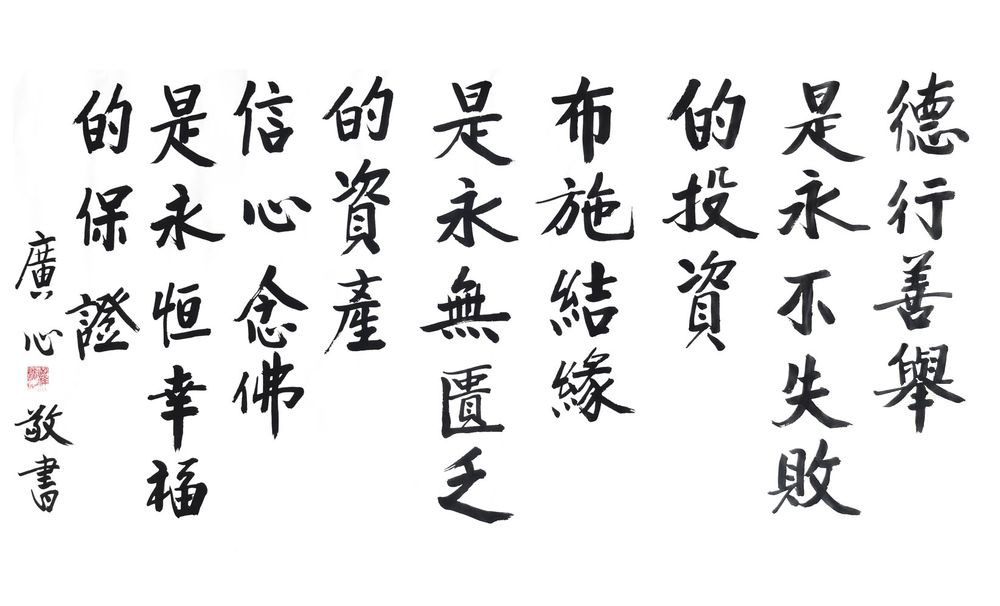 德行善舉
是永不失敗
的投資
布施結緣
是永無匱乏
的資產
信心念佛
是永恒幸福
的保證
廣心敬書